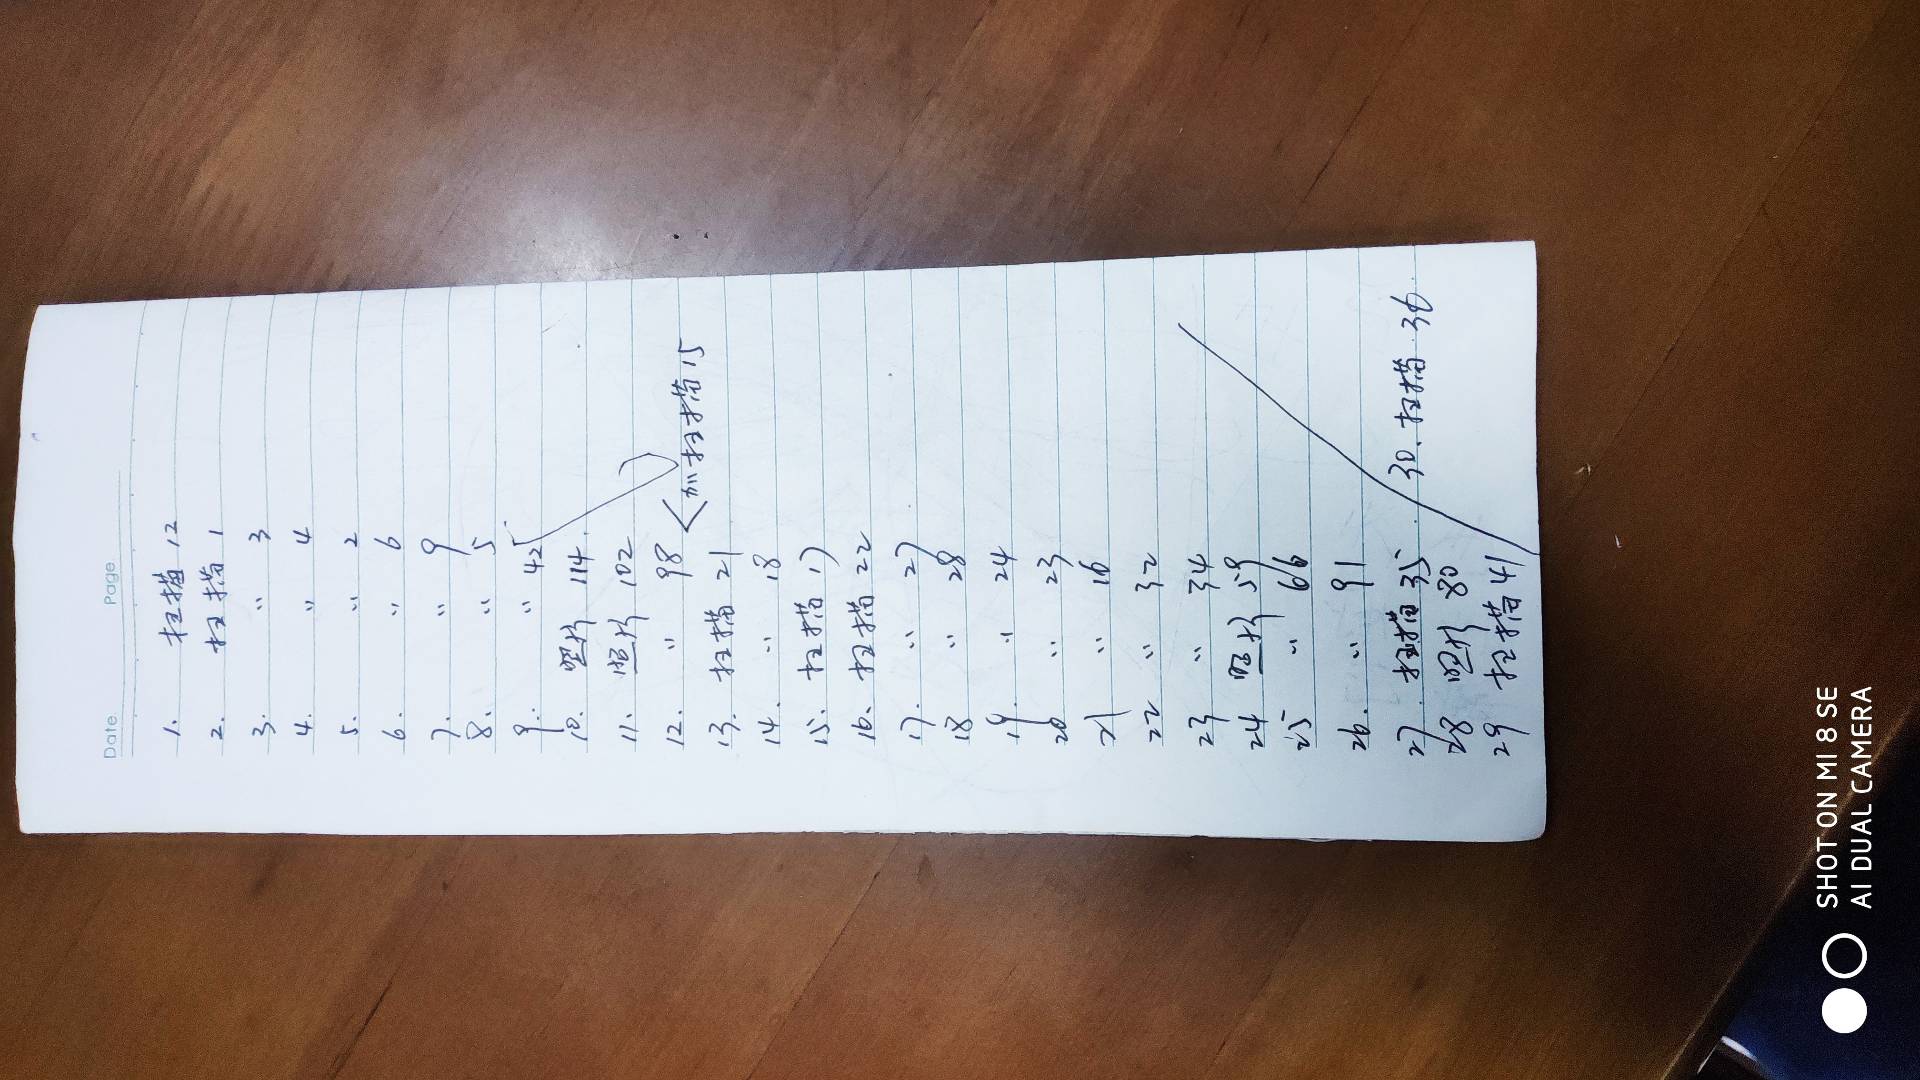 Date. Page.
1. 扫描 12
2. 扫描 1
3. 〃 3
4. 〃 4
5. 〃 2
6. 〃 6
7. 〃 9
8. 〃 5
9. 〃 42
10. 照片 114.
11. 照片 102
12. 〃 98
<加扫描15
13. 扫描 21
14. 〃 18
15. 扫描 17
16. 扫描 22
17. 〃 27
18 〃 28
19. 〃 24
20 〃 23
21 〃 16
22 〃 32
23 〃 34
24 照片 59
25 〃 66
26. 〃 91
27. 扫描 35
28 照片 80
29 扫描 41
30. 扫描 36.
SHOT ON MI 8 SE
AI DUAL CAMERA